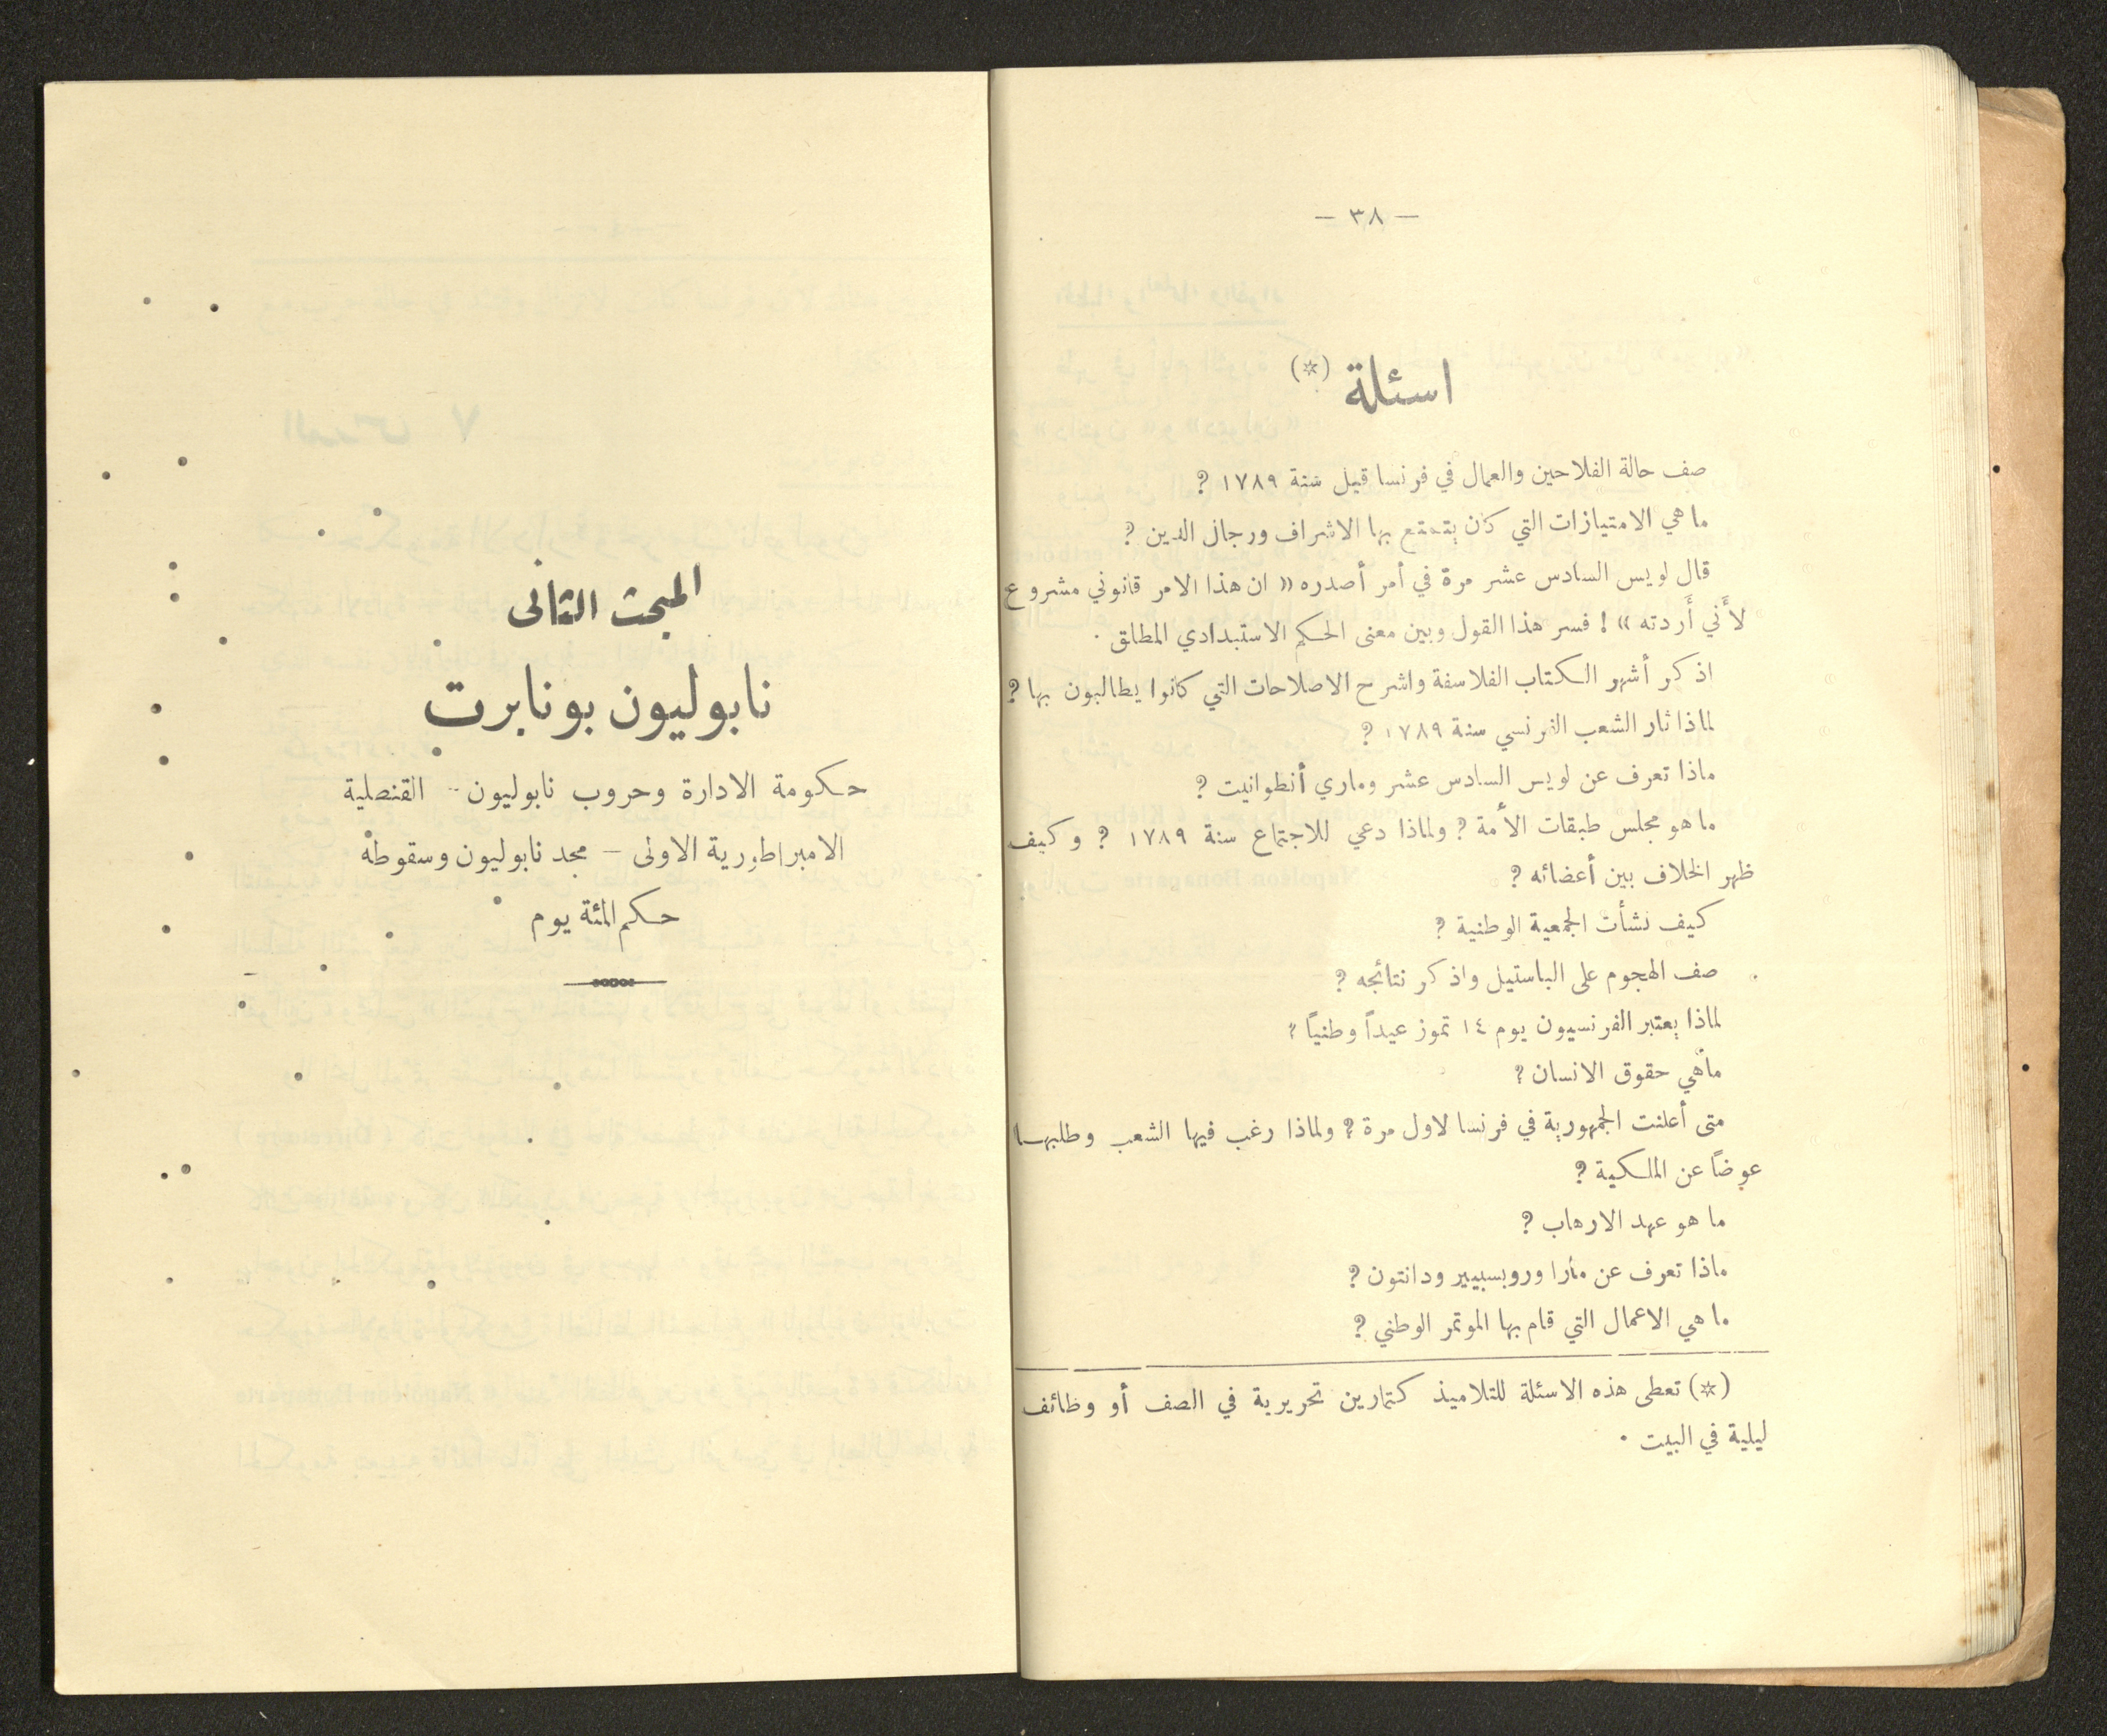 — ٣٨ —
اسئلة (*)
صف حالة الفلاحين والعمال في فرنسا قبل سنة ١٧٨٩ ?
ما هي الامتيازات التي كان يتمتع بها الاشراف ورجال الدين ?
قال لويس السادس عشر مرة في أمر أصدره « ان هذا الامر قانوني مشروع
لأَني أَردته » ! فسر هذا القول وبين معنى الحكم الاستبدادي المطلق .
اذكر أشهر الكتاب الفلاسفة واشرح الاصلاحات التي كانوا يطالبون بها ?
لماذا ثار الشعب الفرنسي سنة ١٧٨٩ ?
ماذا تعرف عن لويس السادس عشر وماري أنطوانيت ?
ما هو مجلس طبقات الأمة ? ولماذا دعي للاجتماع سنة ١٧٨٩ ? وكيف
ظهر الخلاف بين أعضائه ?
كيف نشأت الجمعية الوطنية ?
صف الهجوم على الباستيل واذكر نتائجه ?
لماذا يعتبر الفرنسيون يوم ١٤ تموز عيداً وطنياً ?
ماهي حقوق الانسان ?
متى أعلنت الجمهورية في فرنسا لاول مرة ? ولماذا رغب فيها الشعب وطلبها
عوضاً عن الملكية ?
ما هو عهد الارهاب ?
ماذا تعرف عن مارا وروبسبيير ودانتون ?
ما هي الاعمال التي قام بها الموتمر الوطني ?
(*) تعطى هذه الاسئلة للتلاميذ كتمارين تحريرية في الصف أو وظائف
ليلية في البيت .
المبحث الثانى
نابوليون بونابرت
حكومة الادارة وحروب نابوليون - القنصلية
الامبراطورية الاولى – مجد نابوليون وسقوطه
حكم المئة يوم